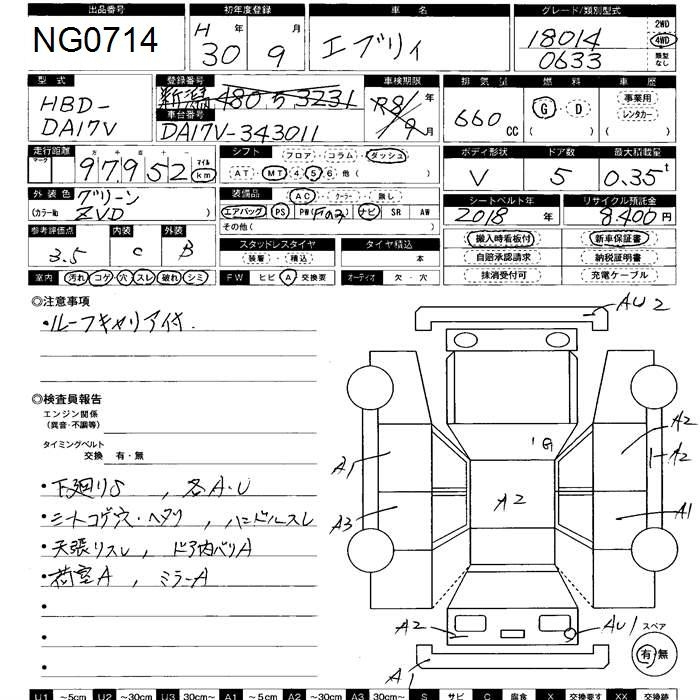 出品番号 初年度登録 車名 グレード/類別型式
NG0714 H 30年 9月 エブリィ 18014 0633 2WD 4WD 類型なし
型式 登録番号 車検期限 排気量 燃料 車歴
HBD-DA17V 新潟480ち3231 R8年 9月 660cc G・D ( ) 事業用 レンタカー ( )
車台番号
DA17V-343011
走行距離 シフト フロア・コラム・ダッシュ ボディ形状 ドア数 最大積載量
マーク 十 万 千 百 十 一
97952 マイル km AT・MT 4 5 6 他( ) V 5 0.35t
外装色 装備品 AC・クーラー・無し シートベルト年式 リサイクル預託金
グリーン
(カラーNo ZVD ) エアバッグ PS PW(Fのみ) ナビ SR AW 2018年 8.400円
その他( )
参考評価点 内装 外装 スタッドレスタイヤ タイヤ積込 搬入時看板付 新車保証書
3.5 C B 装着・積込 本 自賠承認請求 納税証明書
室内 汚れ・コゲ・穴・スレ・破れ・シミ FW ヒビ・A・交換要 オーディオ 欠・穴 抹消受付可 充電ケーブル
◎注意事項
・ルーフキャリア付.
◎検査員報告
エンジン関係
(異音・不調等)
タイミングベルト
交換 有・無
・下廻りS, 各A・U
・シートコゲ穴・ヘタリ, ハンドルスレ
・天張リスレ, ドア内バリA
・荷室A, ミラーA
AU2
A2
A2
'G
A1
A2
A3
A1
A2
AU1
A1
スペア
有・無
U1 ~5cm U2 ~30cm U3 30cm~ A1 ~5cm A2 ~30cm A3 30cm~ S サビ C 腐食 X 交換要す XX 交換跡